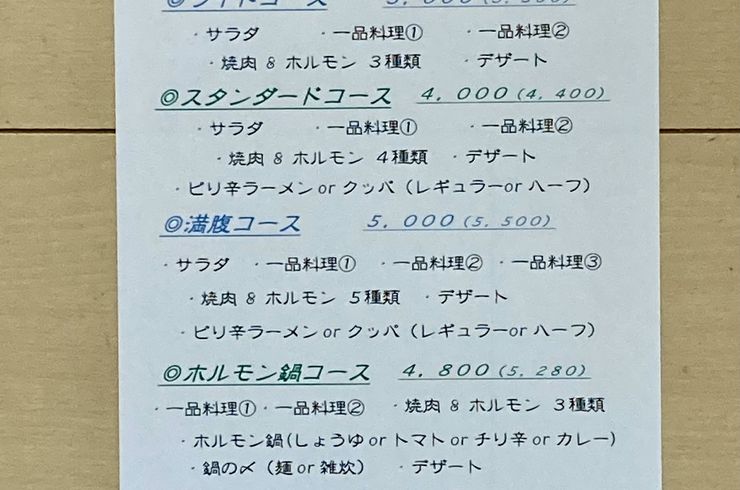 ・サラダ ・一品料理① ・一品料理②
・焼肉 & ホルモン 3種類 ・デザート
◎スタンダードコース 4,000(4,400)
・サラダ ・一品料理① ・一品料理②
・焼肉 & ホルモン 4種類 ・デザート
・ピリ辛ラーメン or クッパ（レギュラーor ハーフ）
◎満腹コース 5,000(5,500)
・サラダ ・一品料理① ・一品料理② ・一品料理③
・焼肉 & ホルモン 5種類 ・デザート
・ピリ辛ラーメン or クッパ（レギュラーor ハーフ）
◎ホルモン鍋コース 4,800(5,280)
・一品料理①・一品料理② ・焼肉 & ホルモン 3種類
・ホルモン鍋(しょうゆ or トマト or チリ辛 or カレー)
・鍋の〆（麺 or 雑炊） ・デザート